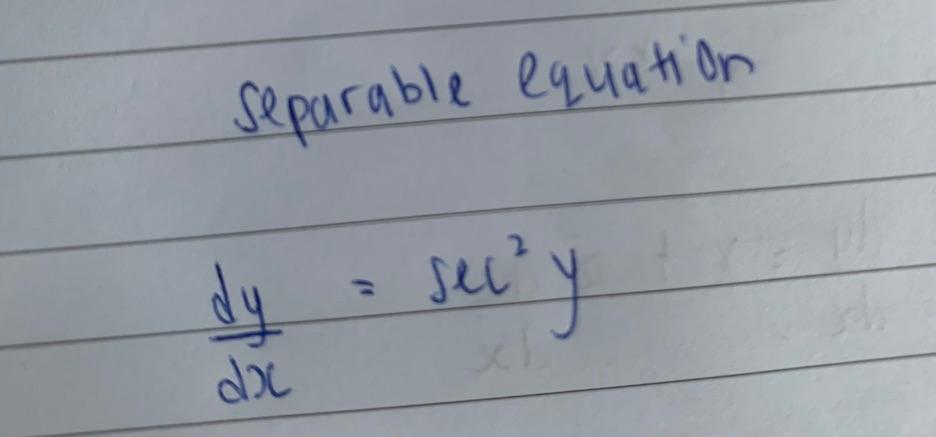 separable equation
dy/dx = sec² y